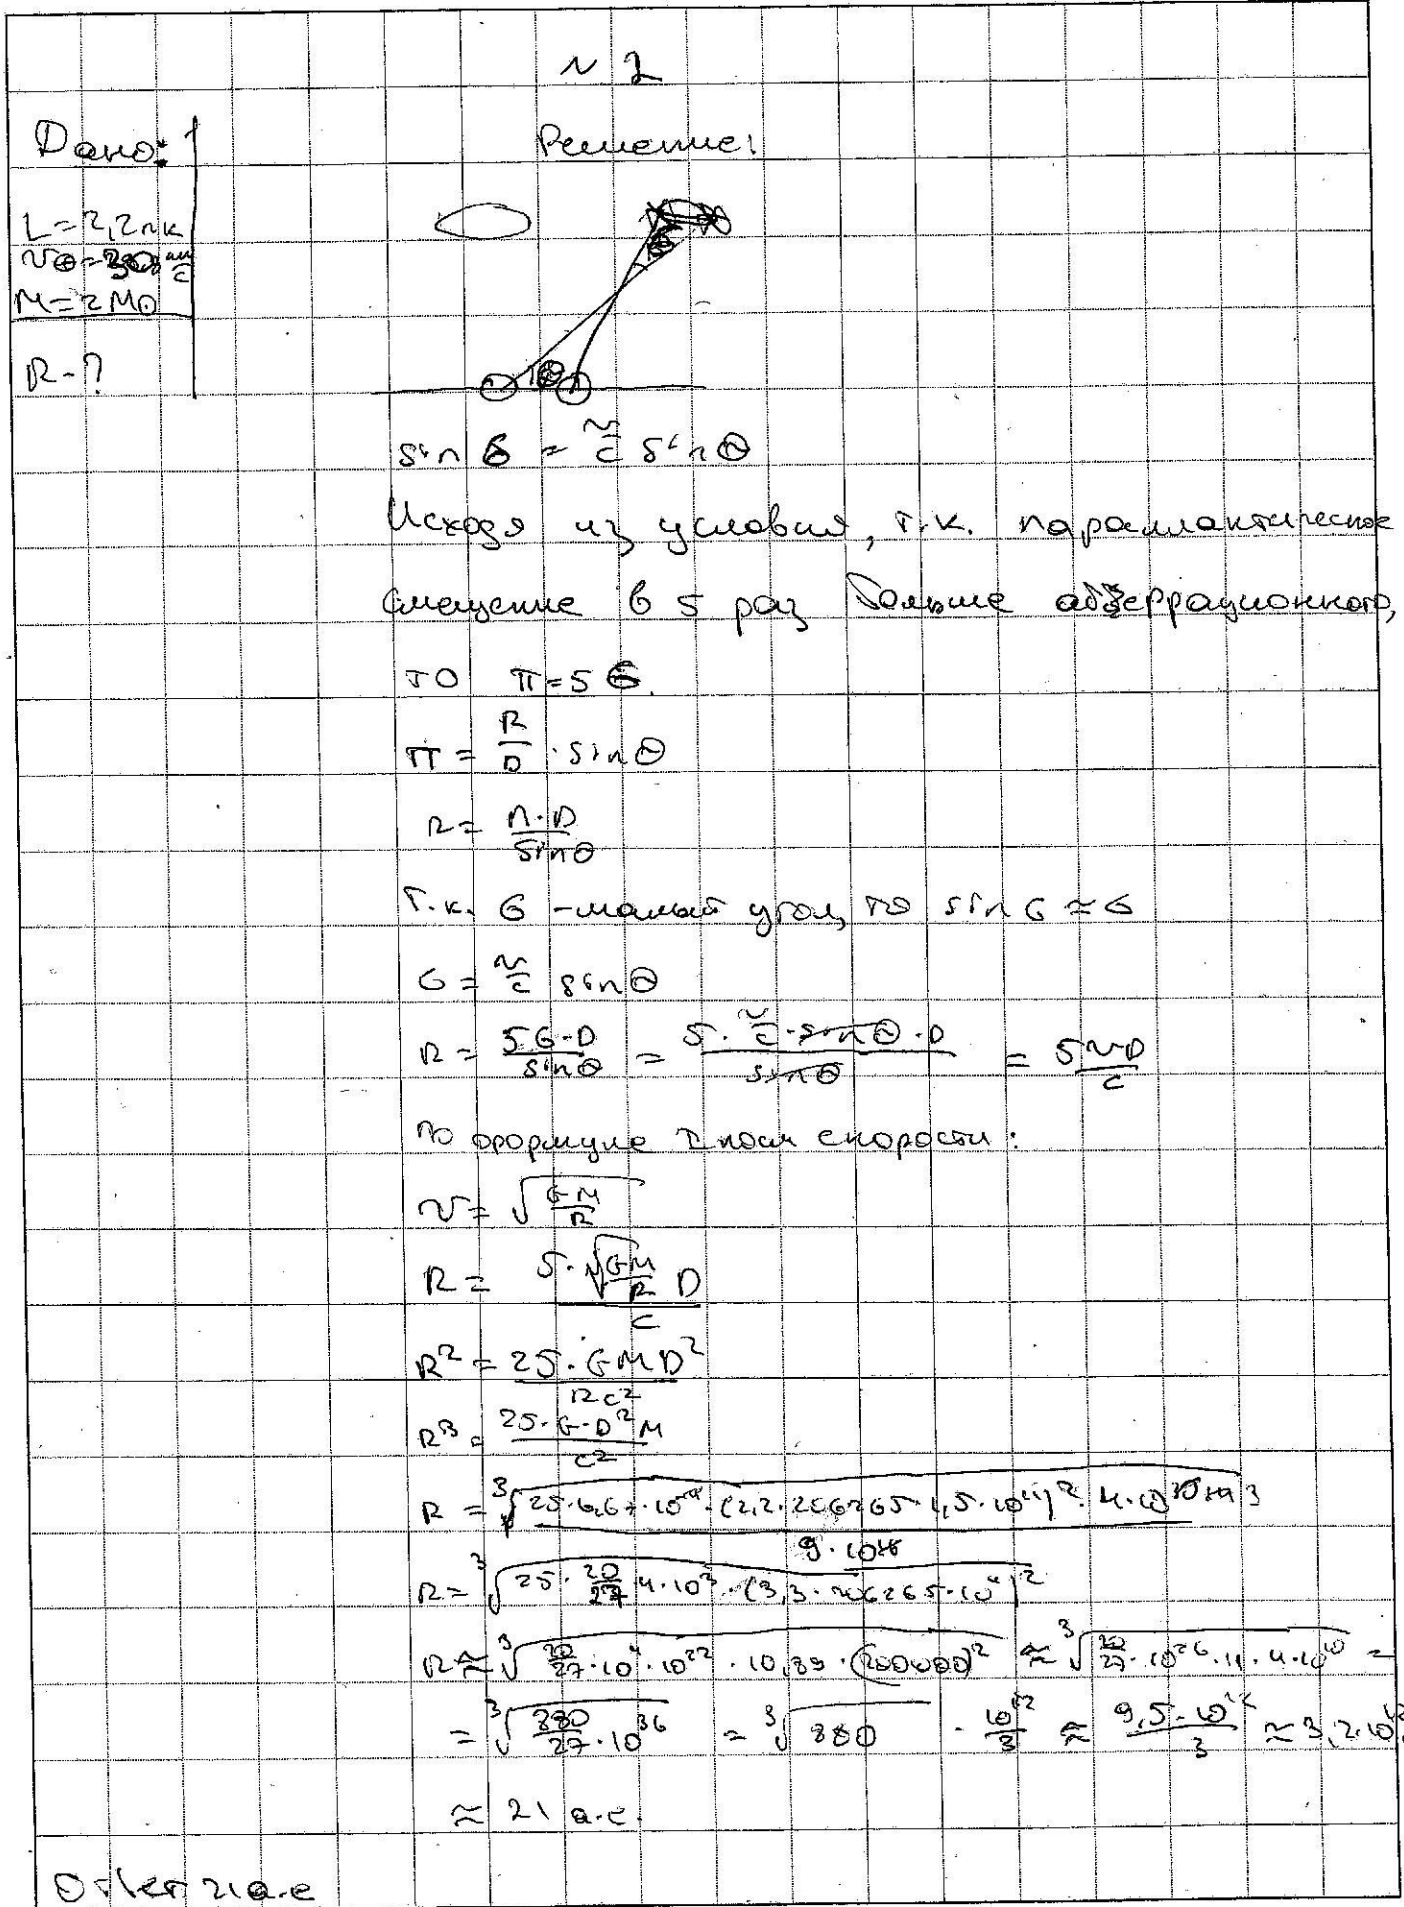 N 2
Дано:
Решение:
L = 2,2 пк
M = 2 M☉
R - ?
sin б = v/c sin Θ
Исходя из условия, т.к. параллактическое
смещение в 5 раз больше абберрационного,
то π = 5 б.
π = R/D · sin Θ
R = π·D / sin Θ
т.к. б - малый угол, то sin б ≈ б
б = v/c sin Θ
R = 5б·D / sin Θ = 5 · v/c · sin Θ · D / sin Θ = 5vD / c
по формуле I косм скорости:
v = √(GM/R)
R = 5·√(GM/R) D / c
R² = 25·GMD² / Rc²
R³ = 25·G·D²M / c²
R = ³√(25·6,67·10⁻¹¹·(2,2·206265·1,5·10¹¹)²·4·10³⁰ / 9·10¹⁶)
R = ³√(25·20/27·4·10³·(3,3·206265·10¹¹)²)
R ≈ ³√(20/27·10⁴·10²²·10,89·(200000)²) ≈ ³√(20/27·10²⁶·11·4·10¹⁰) =
= ³√(880/27·10³⁶) = ³√880 · 10¹²/3 ≈ 9,5·10¹²/3 ≈ 3,2·10¹²
≈ 21 а.е.
Ответ: 21 а.е